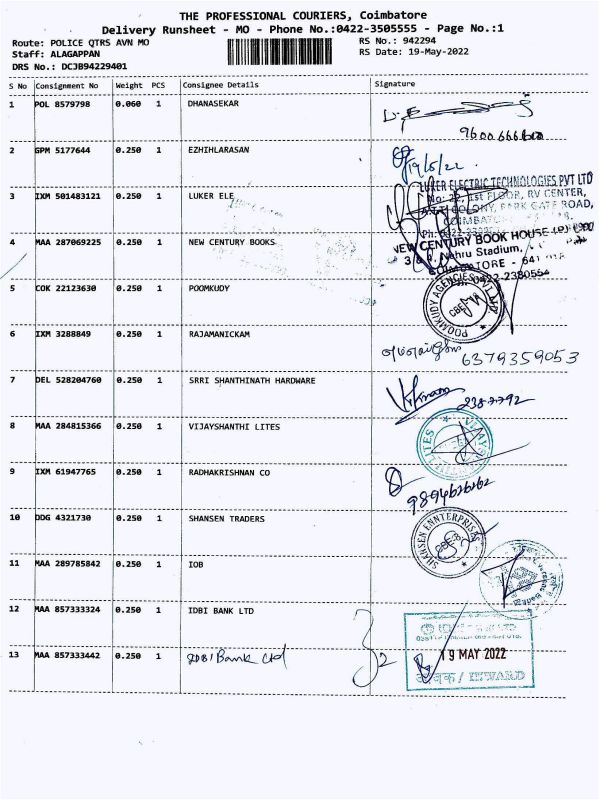 THE PROFESSIONAL COURIERS, Coimbatore
Delivery Runsheet - MO - Phone No.:0422-3505555 - Page No.:1
Route: POLICE QTRS AVN MO RS No.: 942294
Staff: ALAGAPPAN RS Date: 19-May-2022
DRS No.: DCJB94229401
S No Consignment No Weight PCS Consignee Details Signature
1 POL 8579798 0.060 1 DHANASEKAR
2 GPM 5177644 0.250 1 EZHIHLARASAN
19/5/22
3 IXM 501483121 0.250 1 LUKER ELE
LUKER ELECTRIC TECHNOLOGIES PVT LTD
1st FLOOR, RV CENTER,
COLONY, PARK GATE ROAD,
4 MAA 287069225 0.250 1 NEW CENTURY BOOKS
NEW CENTURY BOOK HOUSE (P) LTD
Nehru Stadium,
0422-2380554
5 COK 22123630 0.250 1 POOMKUDY
POOMKUDY AGENCIES
CBE
6 IXM 3288849 0.250 1 RAJAMANICKAM
6379359053
7 DEL 528204760 0.250 1 SRRI SHANTHINATH HARDWARE
8 MAA 284815366 0.250 1 VIJAYSHANTHI LITES
9 IXM 61947765 0.250 1 RADHAKRISHNAN CO
9894626262
10 DDG 4321730 0.250 1 SHANSEN TRADERS
SHANSEN ENNTERPRISES
11 MAA 289785842 0.250 1 IOB
12 MAA 857333324 0.250 1 IDBI BANK LTD
13 MAA 857333442 0.250 1 IDBI Bank Ltd
2
19 MAY 2022
आवक / INWARD